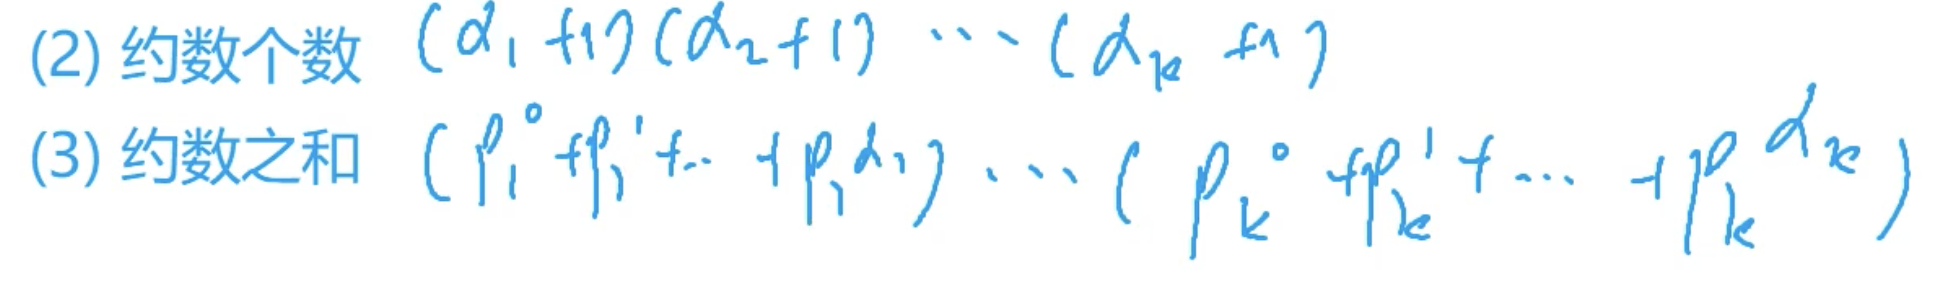 (2) 约数个数 (α₁+1)(α₂+1) ⋯ (αₖ+1)
(3) 约数之和 (p₁⁰+p₁¹+⋯+p₁^α₁) ⋯ (pₖ⁰+pₖ¹+⋯+pₖ^αₖ)